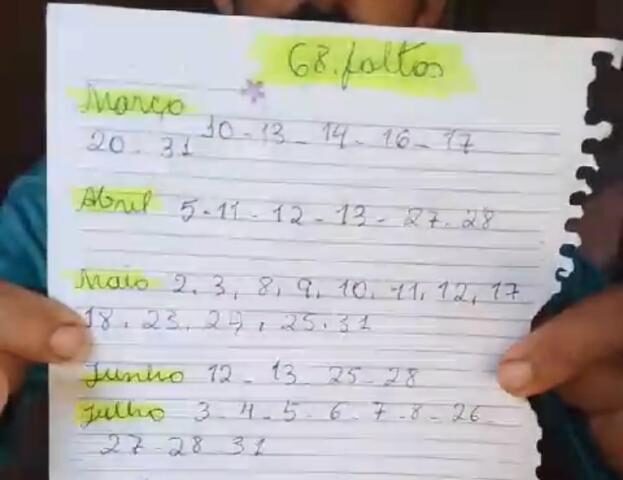 68. faltas
Março 10 - 13 - 14 - 16 - 17
20 - 31
Abril 5 - 11 - 12 - 13 - 27 - 28
Maio 2, 3, 8, 9, 10, 11, 12, 17
18, 23, 24, 25, 31
Junho 12 - 13 - 25 - 28
Julho 3 - 4 - 5 - 6 - 7 - 8 - 26 -
27 - 28 31